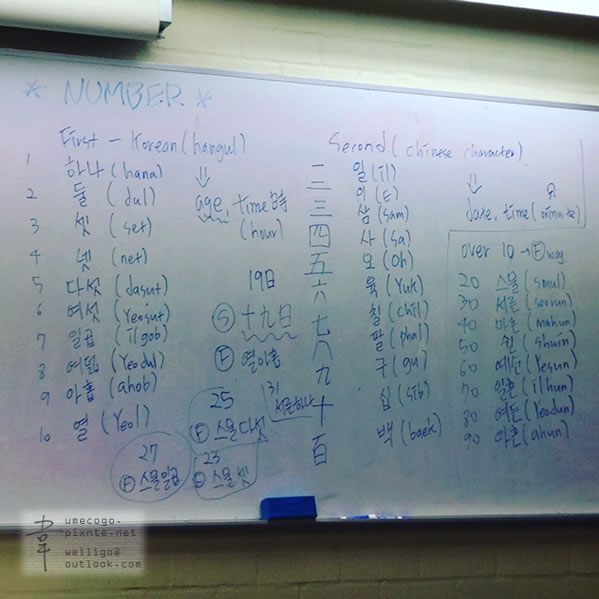 * NUMBER *
First - Korean (hangul)
1 하나 (hana)
2 둘 (dul)
3 셋 (set)
4 넷 (net)
5 다섯 (dasut)
6 여섯 (Yeosut)
7 일곱 (ilgob)
8 여덟 (Yeodul)
9 아홉 (ahob)
10 열 (Yeol)
⇓
age, time 時
(hour)
19日
Ⓢ 十九日
Ⓕ 열아홉
25
Ⓕ 스물다섯
31
서른하나
27
Ⓕ 스물일곱
23
스물셋
Second (chinese character)
일 (il)
二 이 (E)
三 삼 (sam)
四 사 (sa)
五 오 (oh)
六 육 (Yuk)
七 칠 (chil)
八 팔 (phal)
九 구 (gu)
十 십 (sib)
百 백 (baek)
⇓ 分
date, time (minute)
over 10 → Ⓕ way
20 스물 (smul)
30 서른 (seorun)
40 마흔 (mahun)
50 쉰 (shuin)
60 예순 (Yesun)
70 일흔 (ilhun)
80 여든 (Yeodun)
90 아흔 (ahun)
umecogo.
pixnte.net
weiliga@
outlook.com